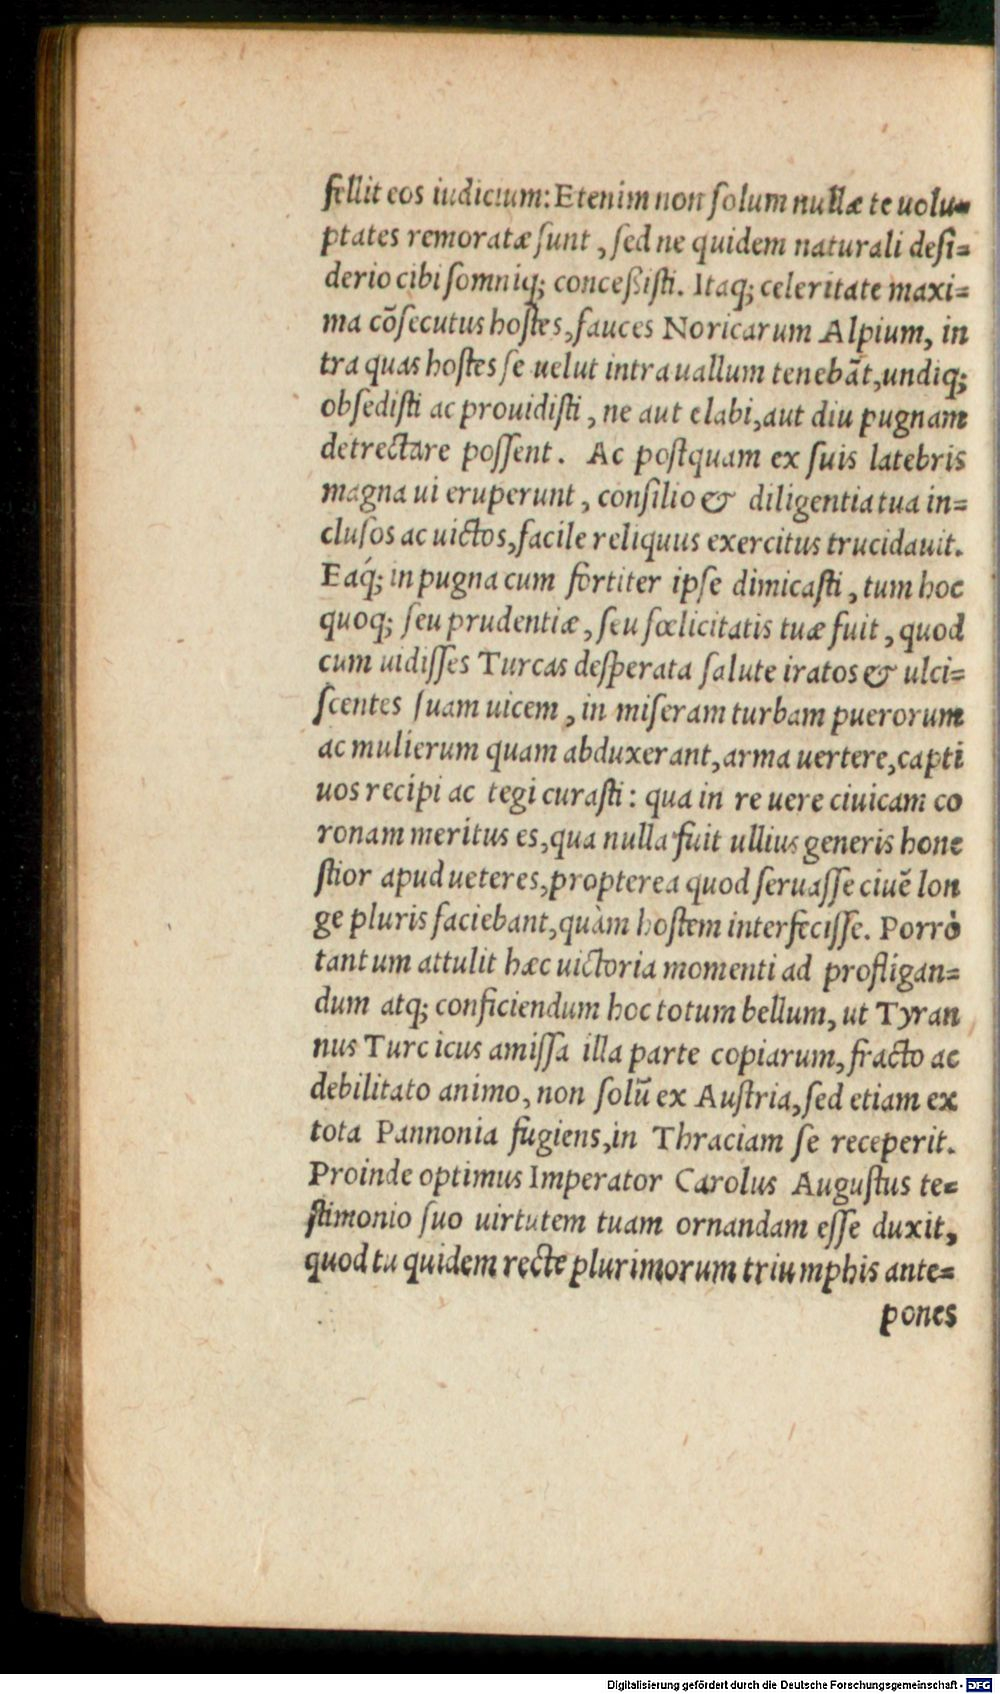 fellit eos iudicium: Etenim non ſolum nullæ te uolu-
ptates remoratæ ſunt, ſed ne quidem naturali deſi=
derio cibi ſomniq; conceßiſti. Itaq; celeritate maxi=
ma cõſecutus hoſtes, fauces Noricarum Alpium, in
tra quas hoſtes ſe uelut intra uallum tenebãt, undiq;
obſediſti ac prouidiſti, ne aut elabi, aut diu pugnam
detrectare poſſent. Ac poſtquam ex ſuis latebris
magna ui eruperunt, conſilio & diligentia tua in=
cluſos ac uictos, facile reliquus exercitus trucidauit.
Eaq́; in pugna cum fortiter ipſe dimicaſti, tum hoc
quoq; ſeu prudentiæ, ſeu fœlicitatis tuæ fuit, quod
cum uidiſſes Turcas deſperata ſalute iratos & ulci=
ſcentes ſuam uicem, in miſeram turbam puerorum
ac mulierum quam abduxerant, arma uertere, capti
uos recipi ac tegi curaſti: qua in re uere ciuicam co
ronam meritus es, qua nulla fuit ullius generis hone
ſtior apud ueteres, propterea quod ſeruaſſe ciuẽ lon
ge pluris faciebant, quàm hoſtem interfeciſſe. Porrò
tantum attulit hæc uictoria momenti ad profligan=
dum atq; conficiendum hoc totum bellum, ut Tyran
nus Turcicus amiſſa illa parte copiarum, fracto ac
debilitato animo, non ſolũ ex Auſtria, ſed etiam ex
tota Pannonia fugiens, in Thraciam ſe receperit.
Proinde optimus Imperator Carolus Auguſtus te=
ſtimonio ſuo uirtutem tuam ornandam eſſe duxit,
quod tu quidem recte plurimorum triumphis ante=
pones
Digitalisierung gefördert durch die Deutsche Forschungsgemeinschaft - DFG